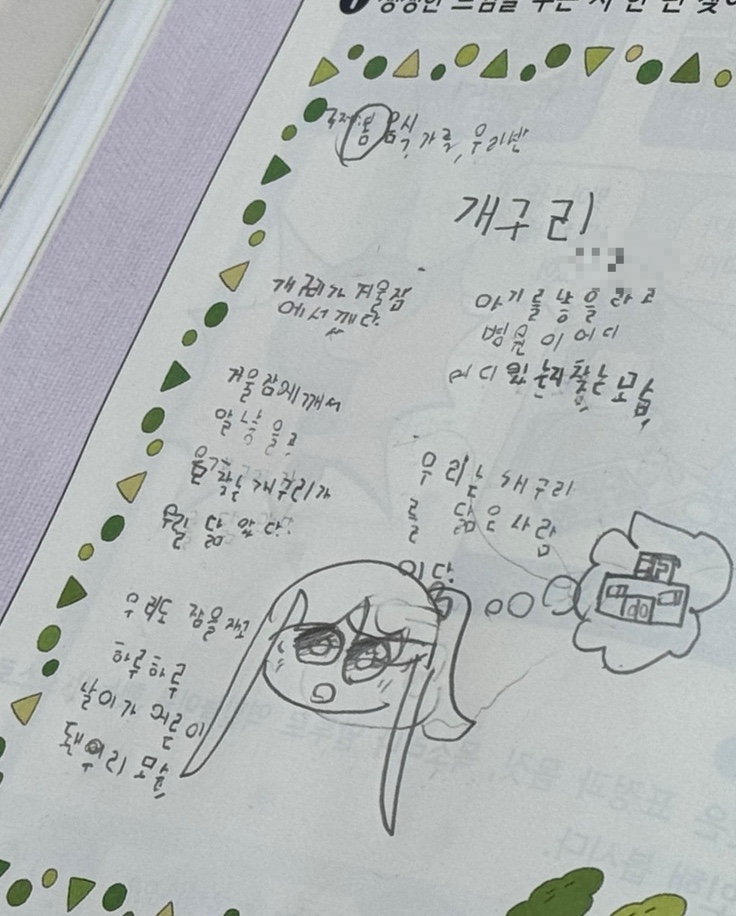 생생한 느낌을 주는 시 한 편
주제: 봄 음식, 가족, 우리반
개구리
개구리가 겨울잠
에서 깨다.
겨울잠에 깨서
알 낳을 곳
찾는 개구리가
우릴 닮았다.
우리도 잠을 자고
하루하루
날이가 어른이
됀 우리 모습
아기를 낳을 라고
병원이 어디
어디 있는지 찾는 모습
우리는 개구리
를 닮은 사람
이다.